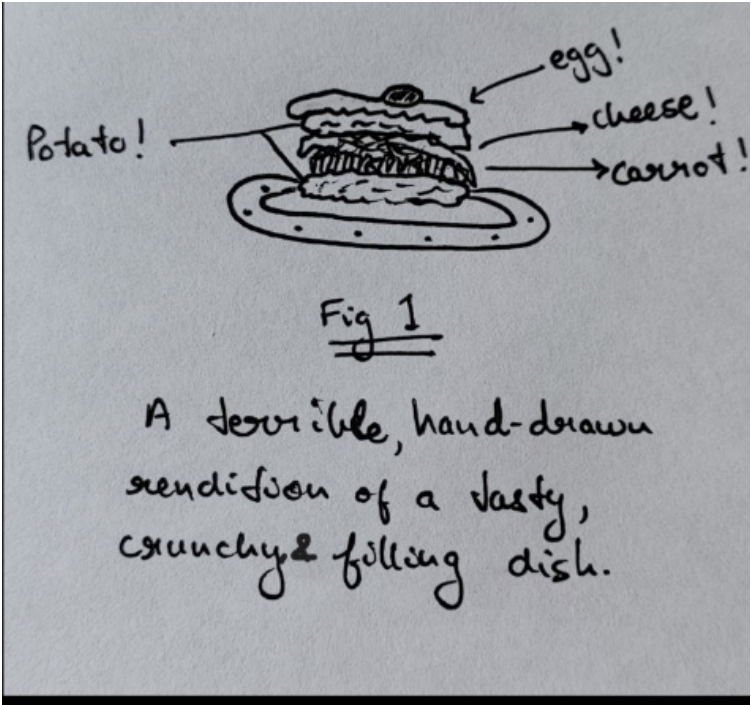 egg!
cheese!
Potato!
carrot!
Fig 1
A terrible, hand-drawn
rendition of a tasty,
crunchy & filling dish.